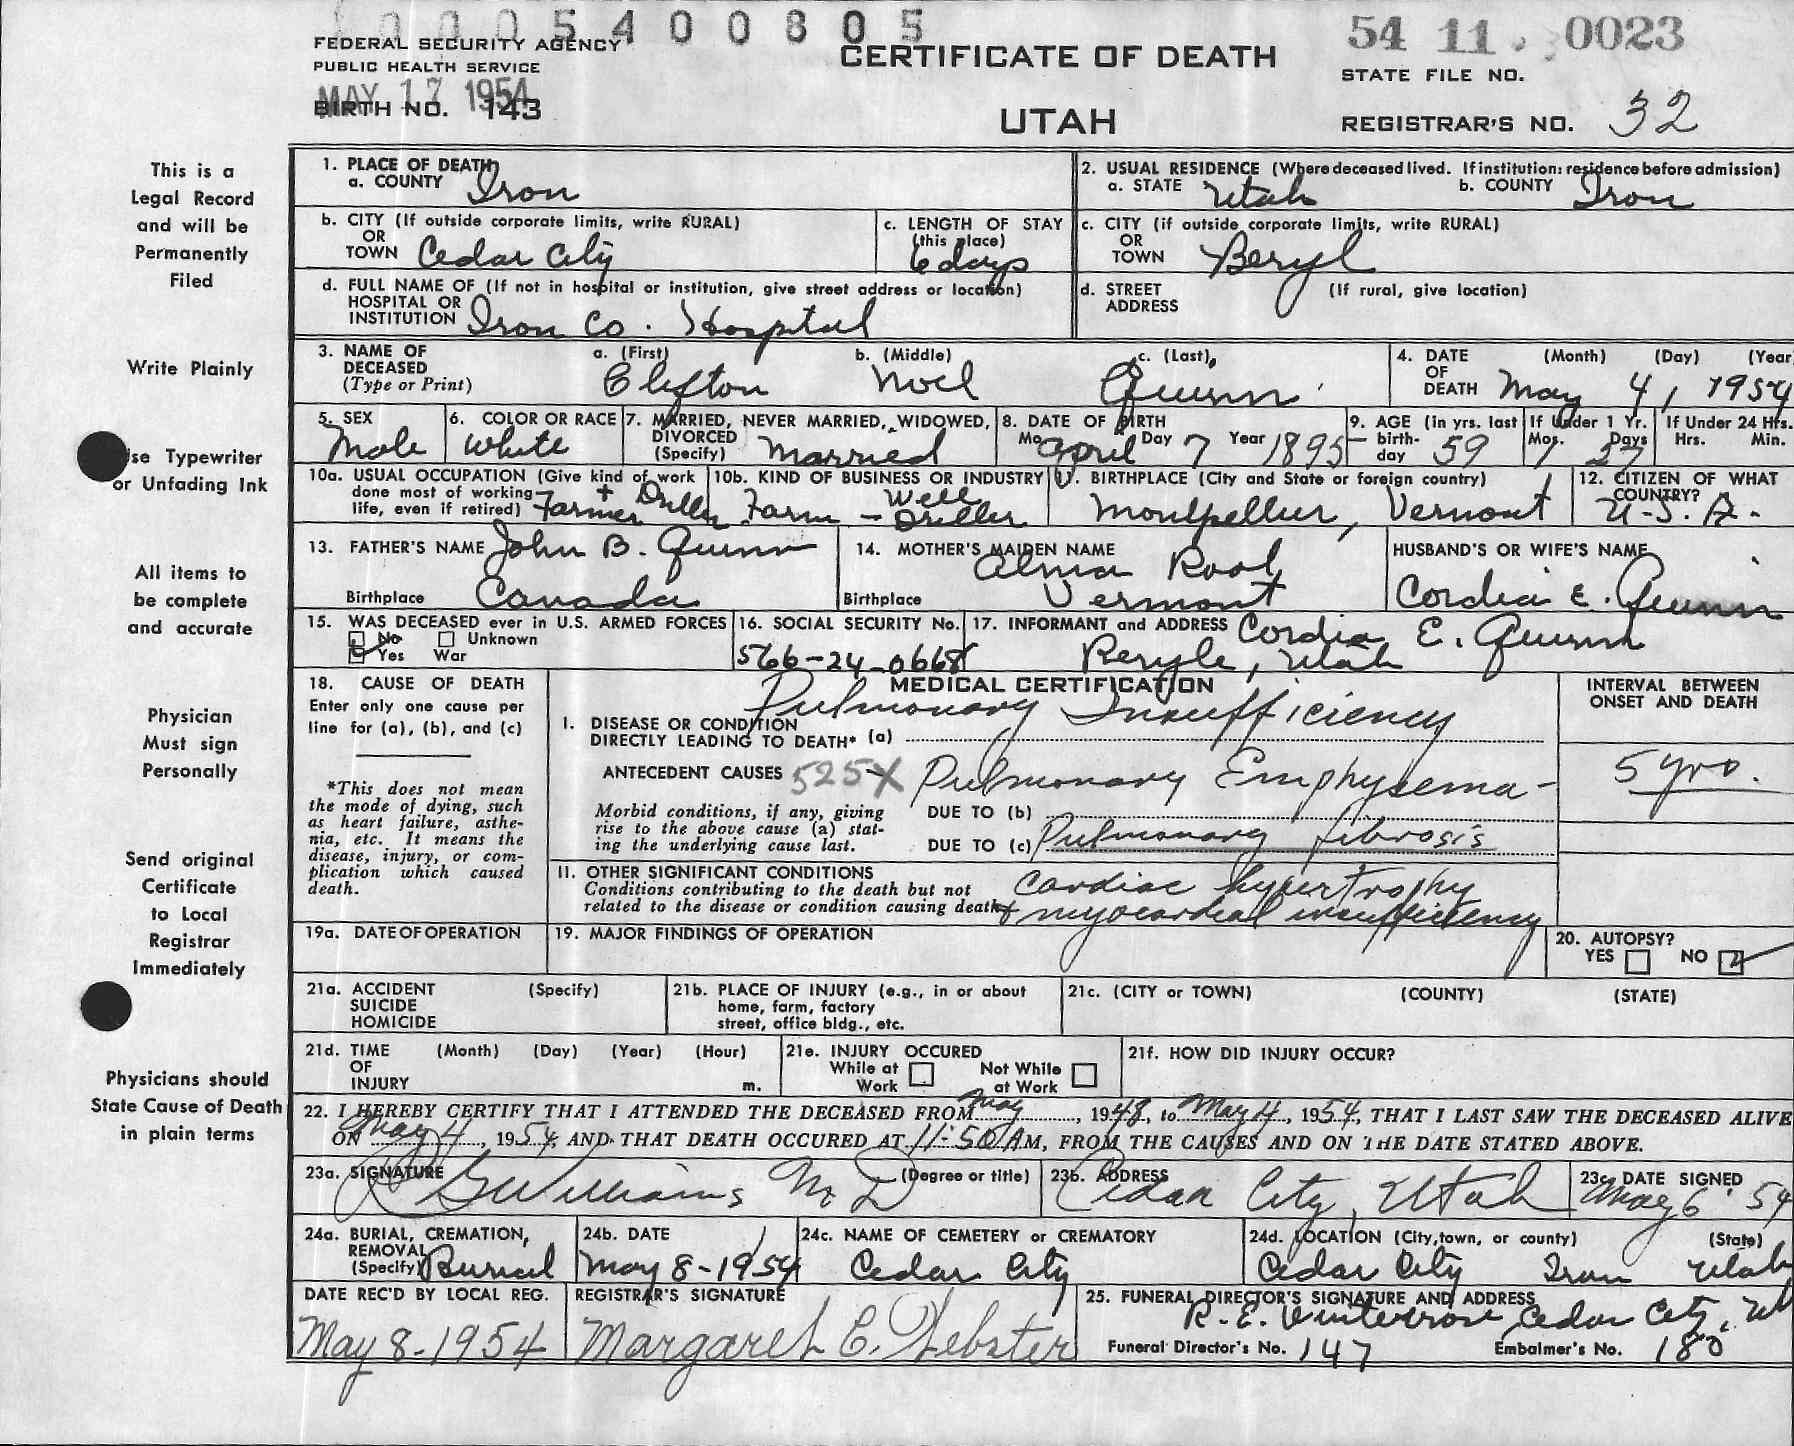 0005400805
FEDERAL SECURITY AGENCY
PUBLIC HEALTH SERVICE
MAY 17 1954
BIRTH NO. 143
CERTIFICATE OF DEATH
UTAH
54 11 0023
STATE FILE NO.
REGISTRAR'S NO. 32
This is a
Legal Record
and will be
Permanently
Filed
Write Plainly
se Typewriter
or Unfading Ink
All items to
be complete
and accurate
Physician
Must sign
Personally
Send original
Certificate
to Local
Registrar
Immediately
Physicians should
State Cause of Death
in plain terms
1. PLACE OF DEATH
a. COUNTY Iron
2. USUAL RESIDENCE (Where deceased lived. If institution: residence before admission)
a. STATE Utah b. COUNTY Iron
b. CITY (If outside corporate limits, write RURAL)
OR
TOWN Cedar City
c. LENGTH OF STAY
(this place)
6 days
c. CITY (if outside corporate limits, write RURAL)
OR
TOWN Beryl
d. FULL NAME OF (If not in hospital or institution, give street address or location)
HOSPITAL OR
INSTITUTION Iron Co. Hospital
d. STREET (If rural, give location)
ADDRESS
3. NAME OF
DECEASED
(Type or Print)
a. (First) b. (Middle) c. (Last)
Clifton Noel Quinn
4. DATE (Month) (Day) (Year
OF
DEATH May 4, 1954
5. SEX
Male
6. COLOR OR RACE
White
7. MARRIED, NEVER MARRIED, WIDOWED,
DIVORCED
(Specify) Married
8. DATE OF BIRTH
Mo. April Day 7 Year 1895
9. AGE (In yrs. last
birth-
day 59
If Under 1 Yr.
Mos. Days
1 27
If Under 24 Hrs.
Hrs. Min.
10a. USUAL OCCUPATION (Give kind of work
done most of working
life, even if retired) Farmer + Driller
10b. KIND OF BUSINESS OR INDUSTRY
Farm - Well Driller
11. BIRTHPLACE (City and State or foreign country)
Montpellier, Vermont
12. CITIZEN OF WHAT
COUNTRY?
U.S.A.
13. FATHER'S NAME John B. Quinn
Birthplace Canada
14. MOTHER'S MAIDEN NAME
Alma Root
Birthplace Vermont
HUSBAND'S OR WIFE'S NAME
Cordia E. Quinn
15. WAS DECEASED ever in U.S. ARMED FORCES
No Unknown
Yes War
16. SOCIAL SECURITY No.
566-24-0668
17. INFORMANT and ADDRESS Cordia E. Quinn
Beryle, Utah
18. CAUSE OF DEATH
Enter only one cause per
line for (a), (b), and (c)
*This does not mean
the mode of dying, such
as heart failure, asthe-
nia, etc. It means the
disease, injury, or com-
plication which caused
death.
MEDICAL CERTIFICATION
Pulmonary Insufficiency
I. DISEASE OR CONDITION
DIRECTLY LEADING TO DEATH* (a)
ANTECEDENT CAUSES 525X Pulmonary Emphysema -
Morbid conditions, if any, giving
rise to the above cause (a) stat-
ing the underlying cause last.
DUE TO (b)
DUE TO (c) Pulmonary fibrosis
INTERVAL BETWEEN
ONSET AND DEATH
5 yrs.
11. OTHER SIGNIFICANT CONDITIONS
Conditions contributing to the death but not
related to the disease or condition causing death.
Cardiac hypertrophy
+ myocardial insufficiency
19a. DATE OF OPERATION
19. MAJOR FINDINGS OF OPERATION
20. AUTOPSY?
YES NO
21a. ACCIDENT (Specify)
SUICIDE
HOMICIDE
21b. PLACE OF INJURY (e.g., in or about
home, farm, factory
street, office bldg., etc.
21c. (CITY or TOWN) (COUNTY) (STATE)
21d. TIME (Month) (Day) (Year) (Hour)
OF
INJURY m.
21e. INJURY OCCURED
While at Work Not While at Work
21f. HOW DID INJURY OCCUR?
22. I HEREBY CERTIFY THAT I ATTENDED THE DECEASED FROM May, 1948, to May 4, 1954, THAT I LAST SAW THE DECEASED ALIVE
ON May 4, 1954, AND THAT DEATH OCCURED AT 11:50 AM, FROM THE CAUSES AND ON THE DATE STATED ABOVE.
23a. SIGNATURE (Degree or title)
Williams M D
23b. ADDRESS
Cedar City, Utah
23c. DATE SIGNED
May 6 54
24a. BURIAL, CREMATION,
REMOVAL
(Specify) Burial
24b. DATE
May 8-1954
24c. NAME OF CEMETERY or CREMATORY
Cedar City
24d. LOCATION (City, town, or county) (State)
Cedar City Iron Utah
DATE REC'D BY LOCAL REG.
May 8-1954
REGISTRAR'S SIGNATURE
Margaret C. Webster
25. FUNERAL DIRECTOR'S SIGNATURE AND ADDRESS
R. E. Winterrose, Cedar City, Ut
Funeral Director's No. 147 Embalmer's No. 180